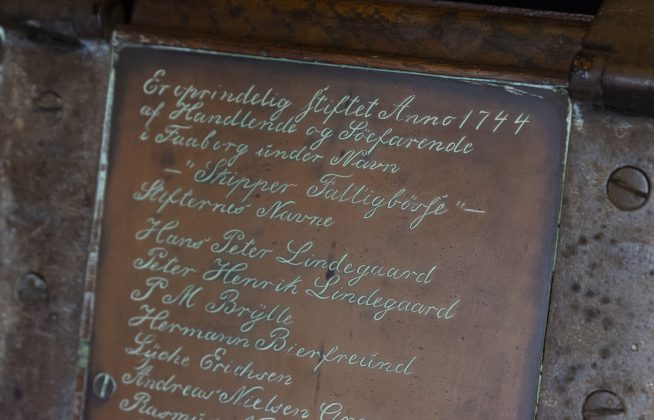 Er oprindelig stiftet Anno 1744
af Handlende og Söefarende
i Faaborg under Navn
— "Skipper Fattigbösse" —
Stifternes Navne
Hans Peter Lindegaard
Peter Henrik Lindegaard
P M Brÿlle
Hermann Bierfreund
Lÿche Erichsen
Andreas Nielsen